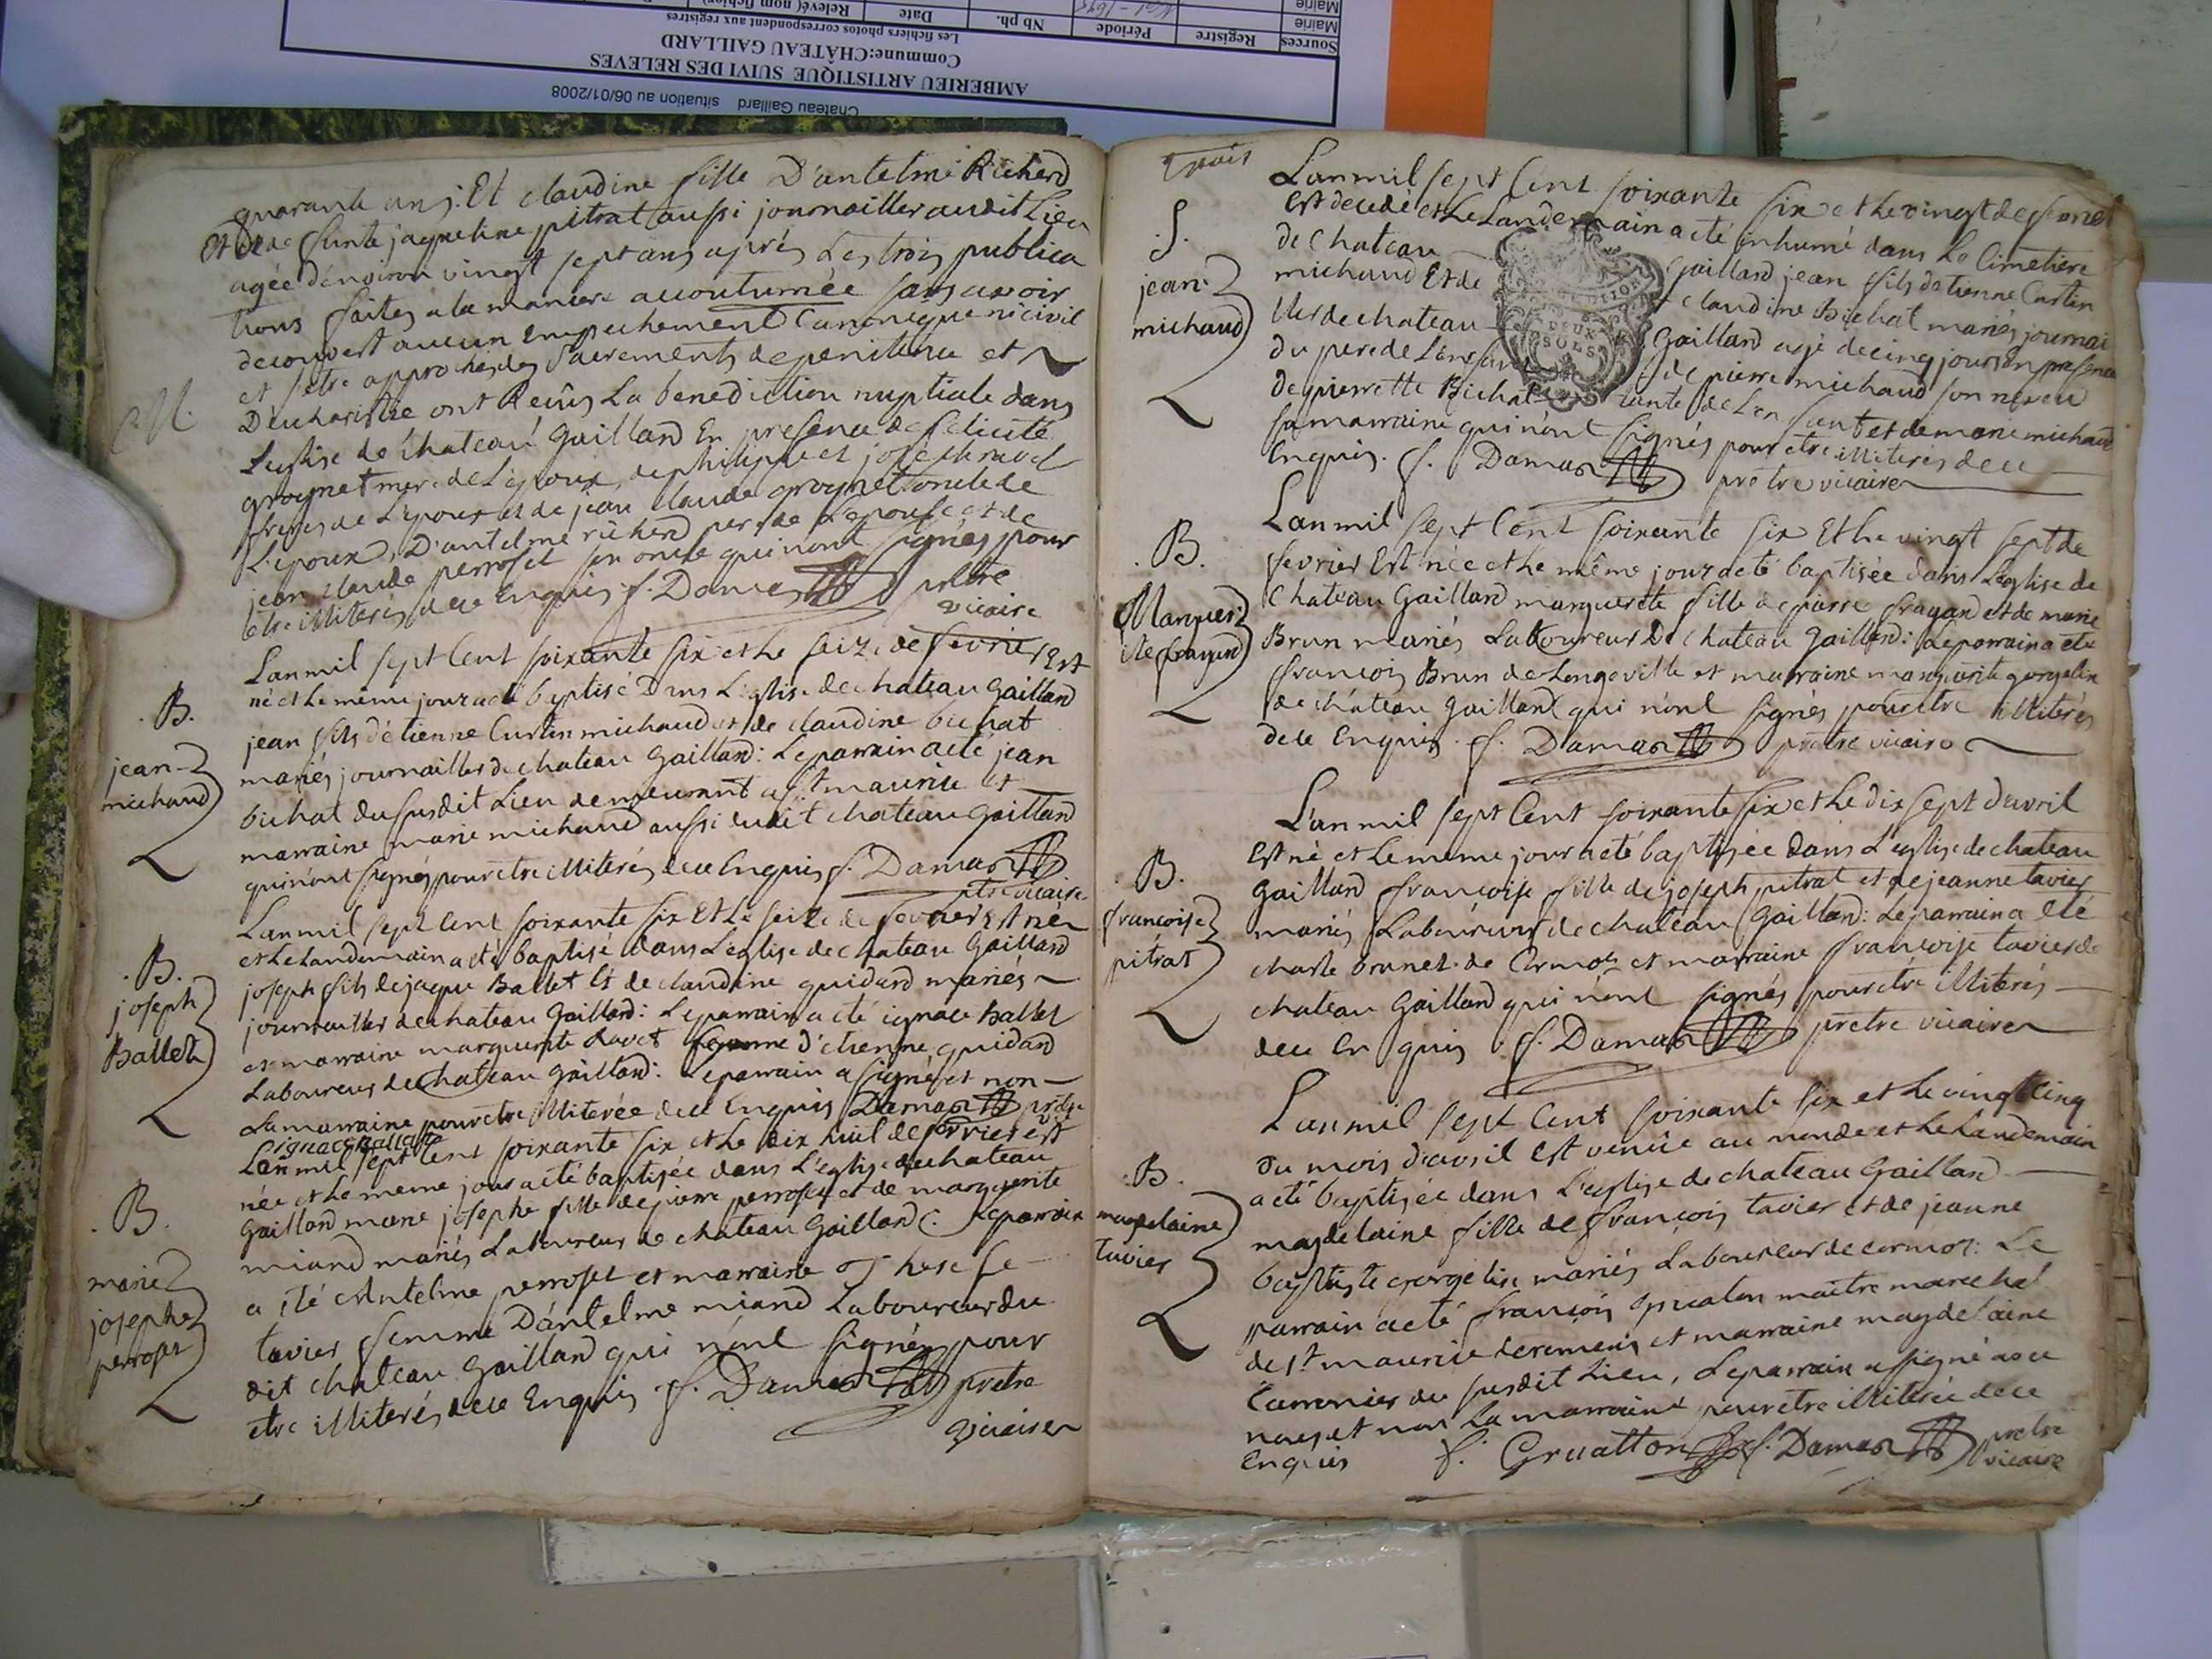 Chateau Gaillard situation au 06/01/2008
AMBERIEU ARTISTIQUE SUIVI DES RELEVES
Commune:CHÂTEAU GAILLARD
Les fichiers photos correspondent aux registres
Sources Registre Période Nb ph. Date Relevé( nom fichier)
Mairie
Mairie
quarante ans: Et claudine fille D'antelme Richerd
Et de defunte jaqueline pitrat aussi journaillier audit Lieu
agée d'environ vingt sept ans après Les trois publica
tions faites a la maniere accoutumée sans avoir
decouvert aucun Empechement Canonique ni civil
et s'être approchés des Sacrements de penitence et
D'eucharistie ont Reçûs La benediction nuptiale dans
L'eglise de chateau Gaillard En presence de felicité
groynet mere de L'epoux, de philippe et joseph ravel
freres de L'epoux et de jean claude groynet oncle de
L'epoux, D'antelme richerd pere de L'epouse et de
jean claude perroset son oncle qui n'ont signés pour
être illiterés de ce Enquis f. Damas prêtre
vicaire
M.
L'an mil sept Cent soixante six et le seize de fevrier Est
né et Le même jour a été baptisé Dans L'eglise de chateau Gaillard
jean fils d'étienne Curten michaud et de claudine bichat
mariés journaillier de chateau Gaillard: Le parrain a été jean
bichat du susdit Lieu demeurant a st maurice et
marraine marie michaud aussi dudit chateau Gaillard
qui n'ont signés pour être illiterés de ce Enquis f. Damas
ptre vicaire
.B.
jean
michaud
L'an mil sept Cent soixante six Et Le seize de fevrier Est né
et Le Landemain a été baptisé dans L'eglise de chateau Gaillard
joseph fils de jaque Ballet Et de claudine guidard mariés
journaillier de chateau Gaillard: Le parrain a été ignace Ballet
et marraine marguerite ravet femme d'etienne guidard
Laboureur de chateau Gaillard: Le parrain a signé et non
La marraine pour etre illiterée de ce Enquis Damas
ignace ballet
.B.
joseph
Ballet
L'an mil sept Cent soixante six et Le dix huit de fevrier est
née et Le même jour a été baptisée dans L'eglise de chateau
Gaillard marie josephe fille de pierre perroset et de marguerite
miand mariés Laboureur de chateau Gaillard: Le parrain
a été Antelme perroset et marraine These se
tavier femme D'antelme miand Laboureur du
dit chateau Gaillard qui n'ont signés pour
être illiterés de ce Enquis f. Damas prêtre
vicaire
.B.
marie
josephe
perroset
L'an mil sept Cent soixante six et le vingt de fevrier
Est decedé et Le Landemain a été inhumé dans Le Cimetiere
de Chateau Gaillard jean fils d'etienne Curten
michaud Et de claudine Bichat mariés journai
llier de chateau Gaillard agé de cinq jours En presence
du pere de L'enfant de pierre michaud son neveu
de pierrette Bichat tante de L'enfant et de marie michaud
sa marraine qui n'ont signés pour être illiterés de ce
Enquis. f. Damas prêtre vicaire
DEUX
SOLS
.S.
jean
michaud
L'an mil sept Cent soixante six Et Le vingt sept de
fevrier Est née et Le même jour a été baptisée dans L'eglise de
Chateau Gaillard marguerite fille de pierre frayard et de marie
Brun mariés Laboureur De chateau Gaillard: Le parrain a été
françois Brun de Longeville et marraine marguerite gorgelin
de château Gaillard qui n'ont signés pour être illiterés
de ce Enquis. f. Damas prêtre vicaire
.B.
Marguer
ite frayard
L'an mil sept Cent soixante six et Le dix sept d'avril
Est né et Le meme jour a été baptisée dans L'eglise de chateau
Gaillard françoise fille de joseph pitrat et de jeanne tavier
mariés Laboureurs de chateau Gaillard: Le parrain a été
charle brunet de Cormoz et marraine françoise tavier de
chateau Gaillard qui n'ont signés pour être illiterés
de ce En quis f. Damas prêtre vicaire
.B.
françoise
pitrat
L'an mil sept Cent soixante six et Le vingt cinq
du mois d'avril Est venûe au monde et Le Landemain
a été baptisée dans L'eglise de chateau Gaillard
magdelaine fille de françois tavier et de jeanne
baptiste gorgelin mariés Laboureur de cormoz: Le
parrain a été françois gruaton maître marechal
de st maurice de remens et marraine magdelaine
Carronier du susdit Lieu, Le parrain a signé avec
nous et non La marraine pour être illiterée de ce
Enquis f. Gruatton f. Damas prêtre
vicaire
.B.
magdelaine
tavier